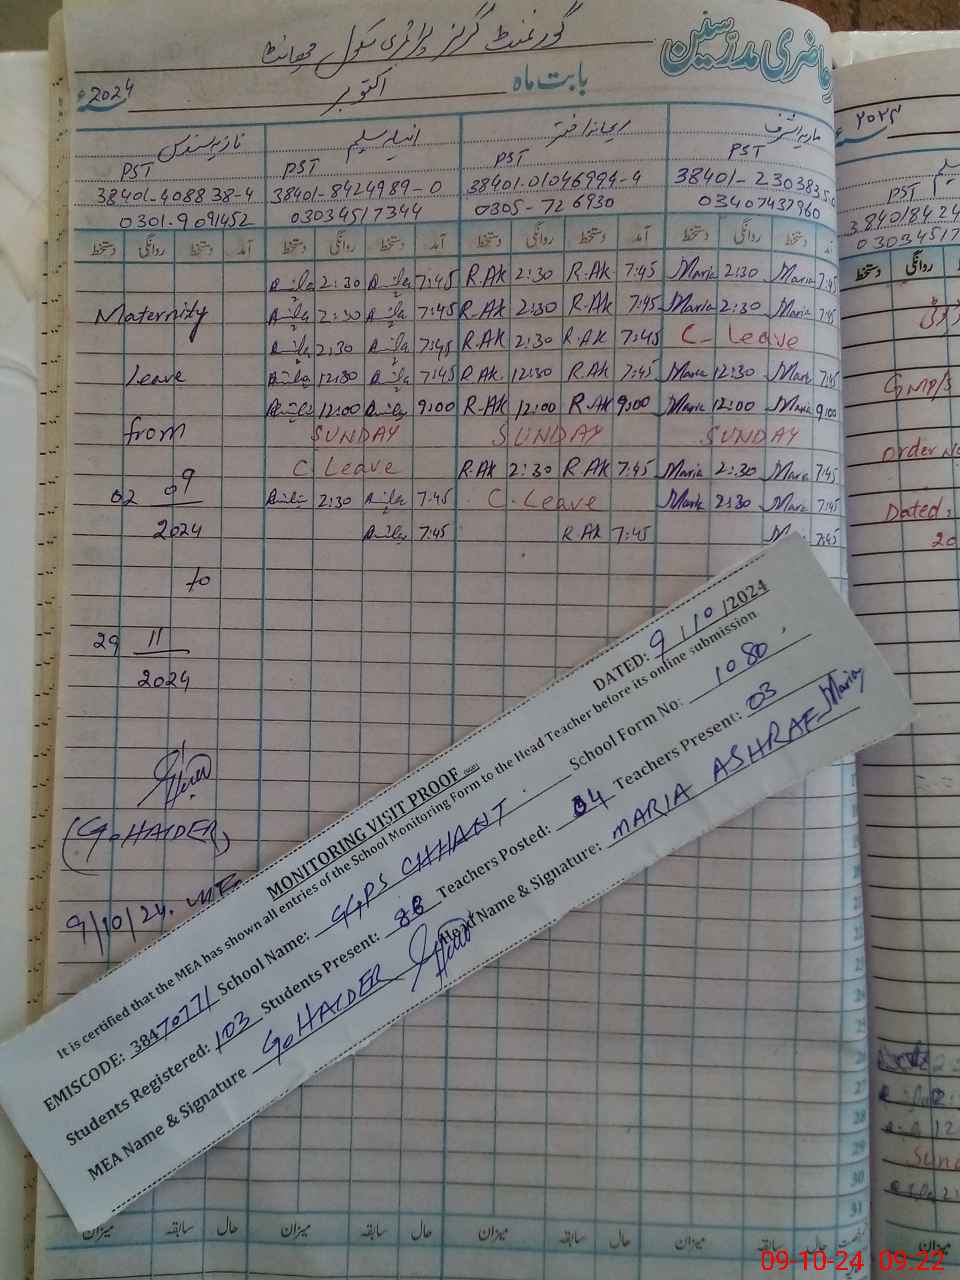 حاضری مدرسین
گورنمنٹ گرلز پرائمری سکول چھانٹ
بابت ماہ اکتوبر 2024ء
ماریہ اشرف ریحانہ اختر انیلہ سلیم نازیہ
PST PST PST PST
38401-4088838-4 38401-8424989-0 38401-01046994-4 38401-2303835-0
0301-9091452 03034517344 0305-726930 03407437960
دستخط روانگی دستخط آمد دستخط روانگی دستخط آمد دستخط روانگی دستخط آمد دستخط روانگی دستخط آمد
انیلہ 2:30 انیلہ 7:45 R.AK 2:30 R.AK 7:45 Maria 2:30 Maria 7:45
Maternity انیلہ 2:30 انیلہ 7:45 R.AK 2:30 R.AK 7:45 Maria 2:30 Maria 7:45
انیلہ 2:30 انیلہ 7:45 R.AK 2:30 R.AK 7:45 C- Leave
Leave انیلہ 12:30 انیلہ 7:45 R.AK 12:30 R.AK 7:45 Maria 12:30 Maria 7:45
انیلہ 12:00 انیلہ 9:00 R-AK 12:00 R-AK 9:00 Maria 12:00 Maria 9:00
from SUNDAY SUNDAY SUNDAY
C Leave R.AK 2:30 R.AK 7:45 Maria 2:30 Maria 7:45
02 09 انیلہ 2:30 انیلہ 7:45 C-Leave Maria 2:30 Maria 7:45
2024 انیلہ 7:45 R.AK 7:45 Maria 7:45
to
29 11
2024
(G.HAIDER)
9/10/24.
MONITORING VISIT PROOF
DATED: 9/10/2024
It is certified that the MEA has shown all entries of the School Monitoring Form to the Head Teacher before its online submission
EMISCODE: 38470771 School Name: GGPS CHHANT School Form No: 1080
Students Registered: 103 Students Present: 88 Teachers Posted: 04 Teachers Present: 03
MEA Name & Signature G. HAIDER Head Name & Signature: MARIA ASHRAF Maria
2024ء
PST
384018424
03034517
دستخط روانگی
GMP/S
order No
Dated:
20
25
27
28
29
30
31
میزان سابقہ حال میزان سابقہ حال میزان سابقہ حال میزان سابقہ حال
میزان
09-10-24 09:22